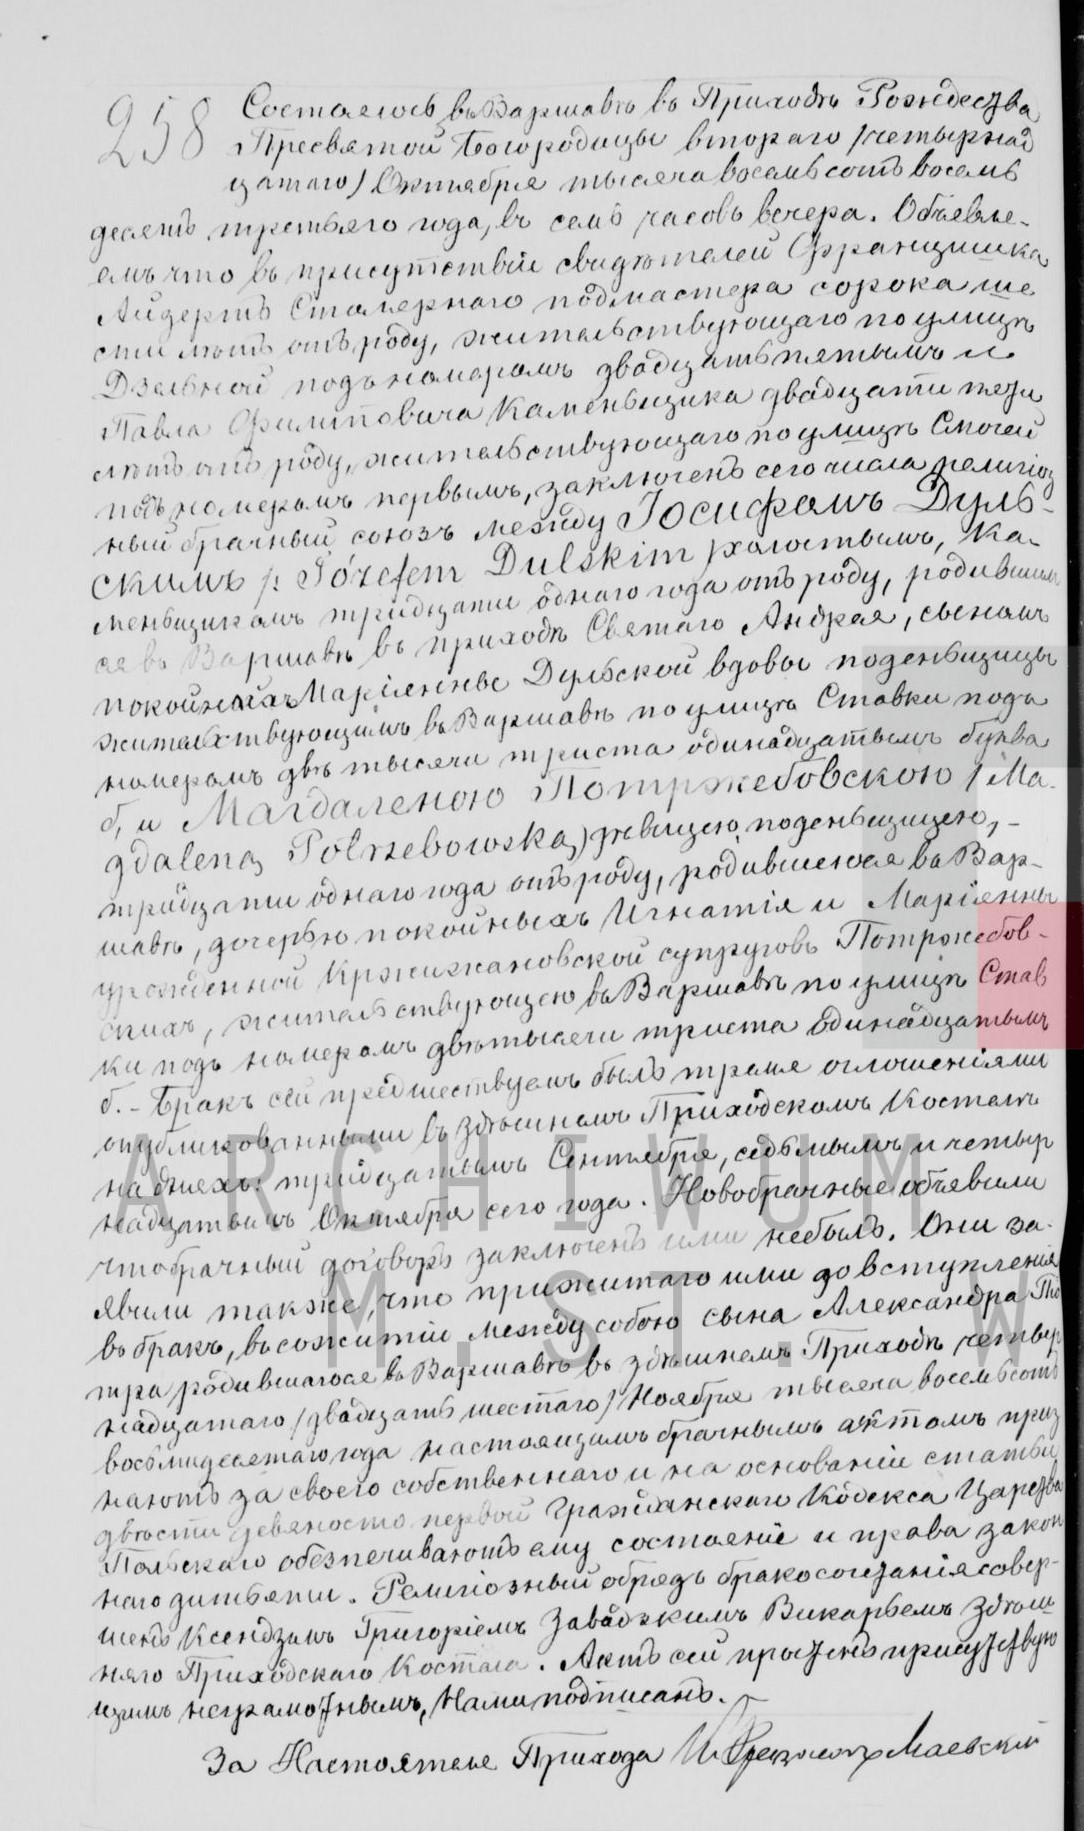 258 Состоялось въ Варшавѣ въ Приходѣ Рождества
Пресвятой Богородицы втораго /четырнад
цатаго/ Октября тысяча восемьсотъ восемь
десятъ третьяго года, въ семь часовъ вечера. Объявля-
емъ что въ присутствіи свидѣтелей Францишка
Айдертъ Столярнаго подмастера сорока ше
сти лѣтъ отъ роду, жительствующаго по улицѣ
Дзельной подъ номеромъ двадцать пятымъ и
Павла Филиповича Каменьщика двадцати
лѣтъ отъ роду, жительствующаго по улицѣ Смочей
подъ номеромъ первымъ, заключенъ сего числа религіоз
ный брачный союзъ между Іосифомъ Дуль-
скимъ /: Józefem Dulskim / холостымъ, Ка-
меньщикомъ тридцати одного года отъ роду, родившим
ся въ Варшавѣ въ приходѣ Святаго Андрея, сыномъ
Маріянны Дульской вдовы поденьщицы
жительствующимъ въ Варшавѣ по улицѣ Ставки подъ
номеромъ двѣ тысячи триста одинадцатымъ буква
б, и Магдаленою Потржебовскою / Ma-
gdaleną Potrzebowską) дѣвицею, поденьщицею, -
тридцати одного года отъ роду, родившеюся въ Вар-
шавѣ, дочерью покойныхъ Игнатія и Маріянны
урожденной Кржижановской супруговъ Потржебов-
скихъ, жительствующею въ Варшавѣ по улицѣ Став
ки подъ номеромъ двѣ тысячи триста одинадцатымъ
б. - Бракъ сей предшествуемъ былъ тремя оглошеніями
опубликованными въ здѣшнемъ Приходскомъ Костелѣ
на дняхъ: тридцатымъ Сентября, седьмымъ и четыр
надцатымъ Октября сего года. Новобрачные объявили
что брачный договоръ заключенъ ими небылъ. Они за-
явили также, что прижитаго ими до вступленія
въ бракъ, въ сожитіи между собою сына Александра Пё
тра родившагося въ Варшавѣ въ здѣшнемъ Приходѣ четыр
надцатаго /двадцать шестаго/ Ноября тысяча восемьсотъ
восьмидесятаго года настоящимъ брачнымъ актомъ приз
наютъ за своего собственнаго и на основаніи статьи
двѣсти девяносто первой Гражданскаго Кодекса Царства
Польскаго обезпечиваютъ ему состояніе и права закон
наго дитяти. Религіозный обрядъ бракосочетанія совер-
шенъ Ксендзомъ Григоріемъ Завадзкимъ Викаріемъ здѣш
няго Приходскаго Костела. Актъ сей прочтенъ присутствую
щимъ неграмотнымъ, Нами подписанъ.
За Настоятеля Прихода Маевскій
ARCHIWUM
M. ST. W